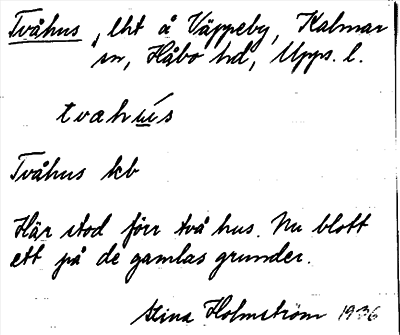 Tvåhus, lht å Väppeby, Kalmar
sn, Håbo hd, Upps. l.
tvahús
Tvåhus kb
Här stod förr två hus. Nu blott
ett på de gamlas grunder.
Stina Holmström 1936